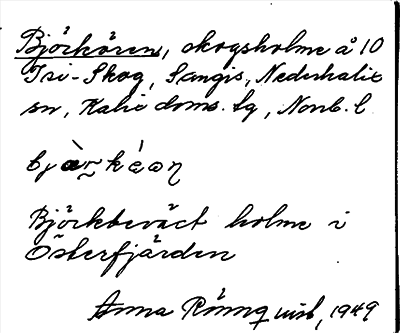 Björkören, skogsholme å 10
Tri-Skog, Sangis, Nederkalix
sn, Kalix doms. lg, Norrb. l
Björkbeväxt holme i
Österfjärden
Anna Rönnqvist, 1949